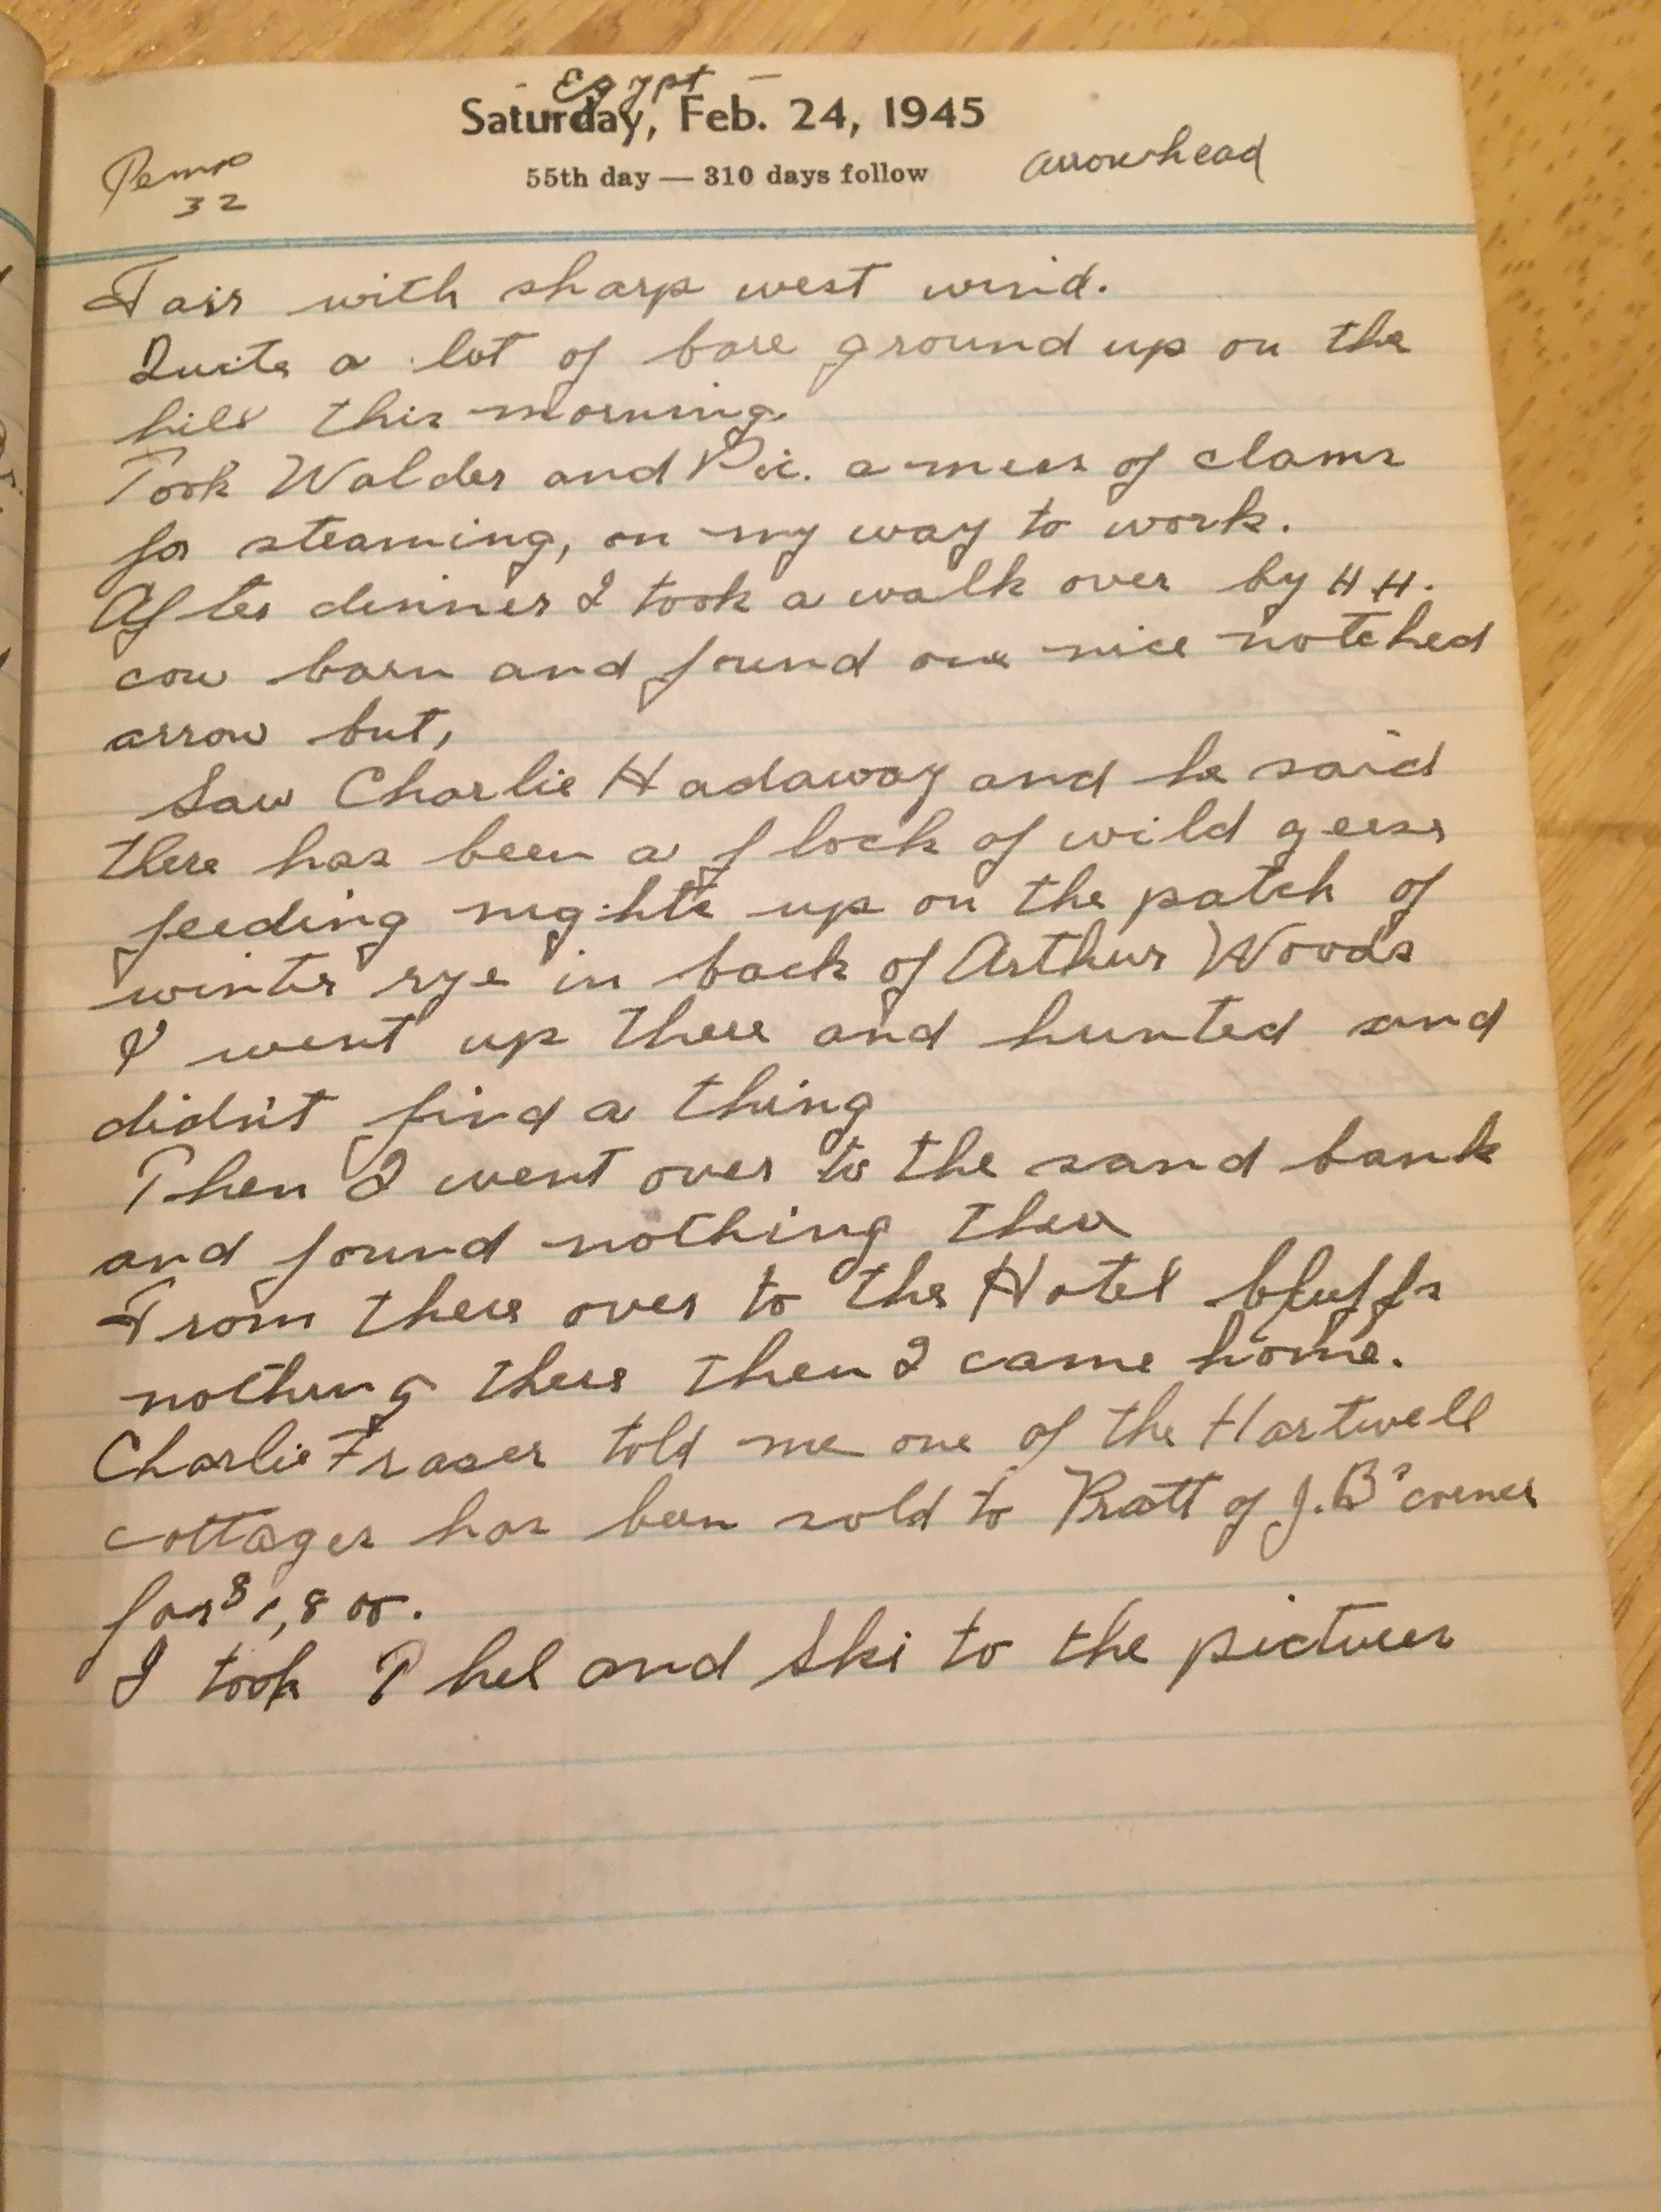 - Egypt -
Saturday, Feb. 24, 1945
55th day — 310 days follow
Temp
32
arrowhead
Fair with sharp west wind.
Quite a lot of bare ground up on the
hill this morning.
Took Walder and Vic. a mess of clams
for steaming, on my way to work.
After dinner I took a walk over by H H.
cow barn and found one nice notched
arrow but,
Saw Charlie Hadaway and he said
there has been a flock of wild geese
feeding nights up on the patch of
winter rye in back of Arthur Woods
I went up there and hunted and
didn't find a thing
Then I went over to the sand bank
and found nothing there
From there over to the Hotel bluffs
nothing there then I came home.
Charlie Fraser told me one of the Hartwell
cottages has been sold to Pratt of J.B's corner
for $1,800.
I took Phel and Ski to the pictures